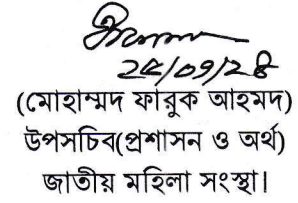 ২৫/০৭/২৪
(মোহাম্মদ ফারুক আহমদ)
উপসচিব(প্রশাসন ও অর্থ)
জাতীয় মহিলা সংস্থা।